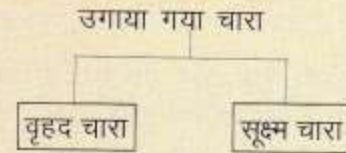 उगाया गया चारा
वृहद चारा
सूक्ष्म चारा